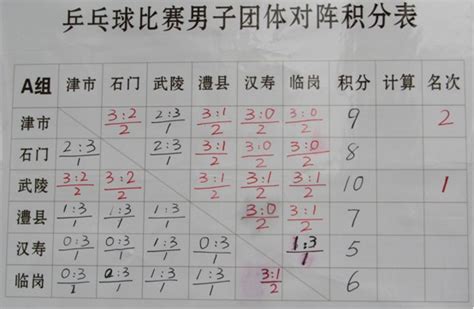 乒乓球比赛男子团体对阵积分表
A组 津市 石门 武陵 澧县 汉寿 临岗 积分 计算 名次
津市 3:2/2 2:3/1 3:1/2 3:0/2 3:0/2 9 2
石门 2:3/1 2:3/1 3:1/2 3:1/2 3:0/2 8
武陵 3:2/2 3:2/2 3:1/2 3:1/2 3:1/2 10 1
澧县 1:3/1 1:3/1 1:3/1 3:0/2 3:1/2 7
汉寿 0:3/1 1:3/1 1:3/1 0:3/1 1:3/1 5
临岗 0:3/1 0:3/1 1:3/1 1:3/1 3:1/2 6